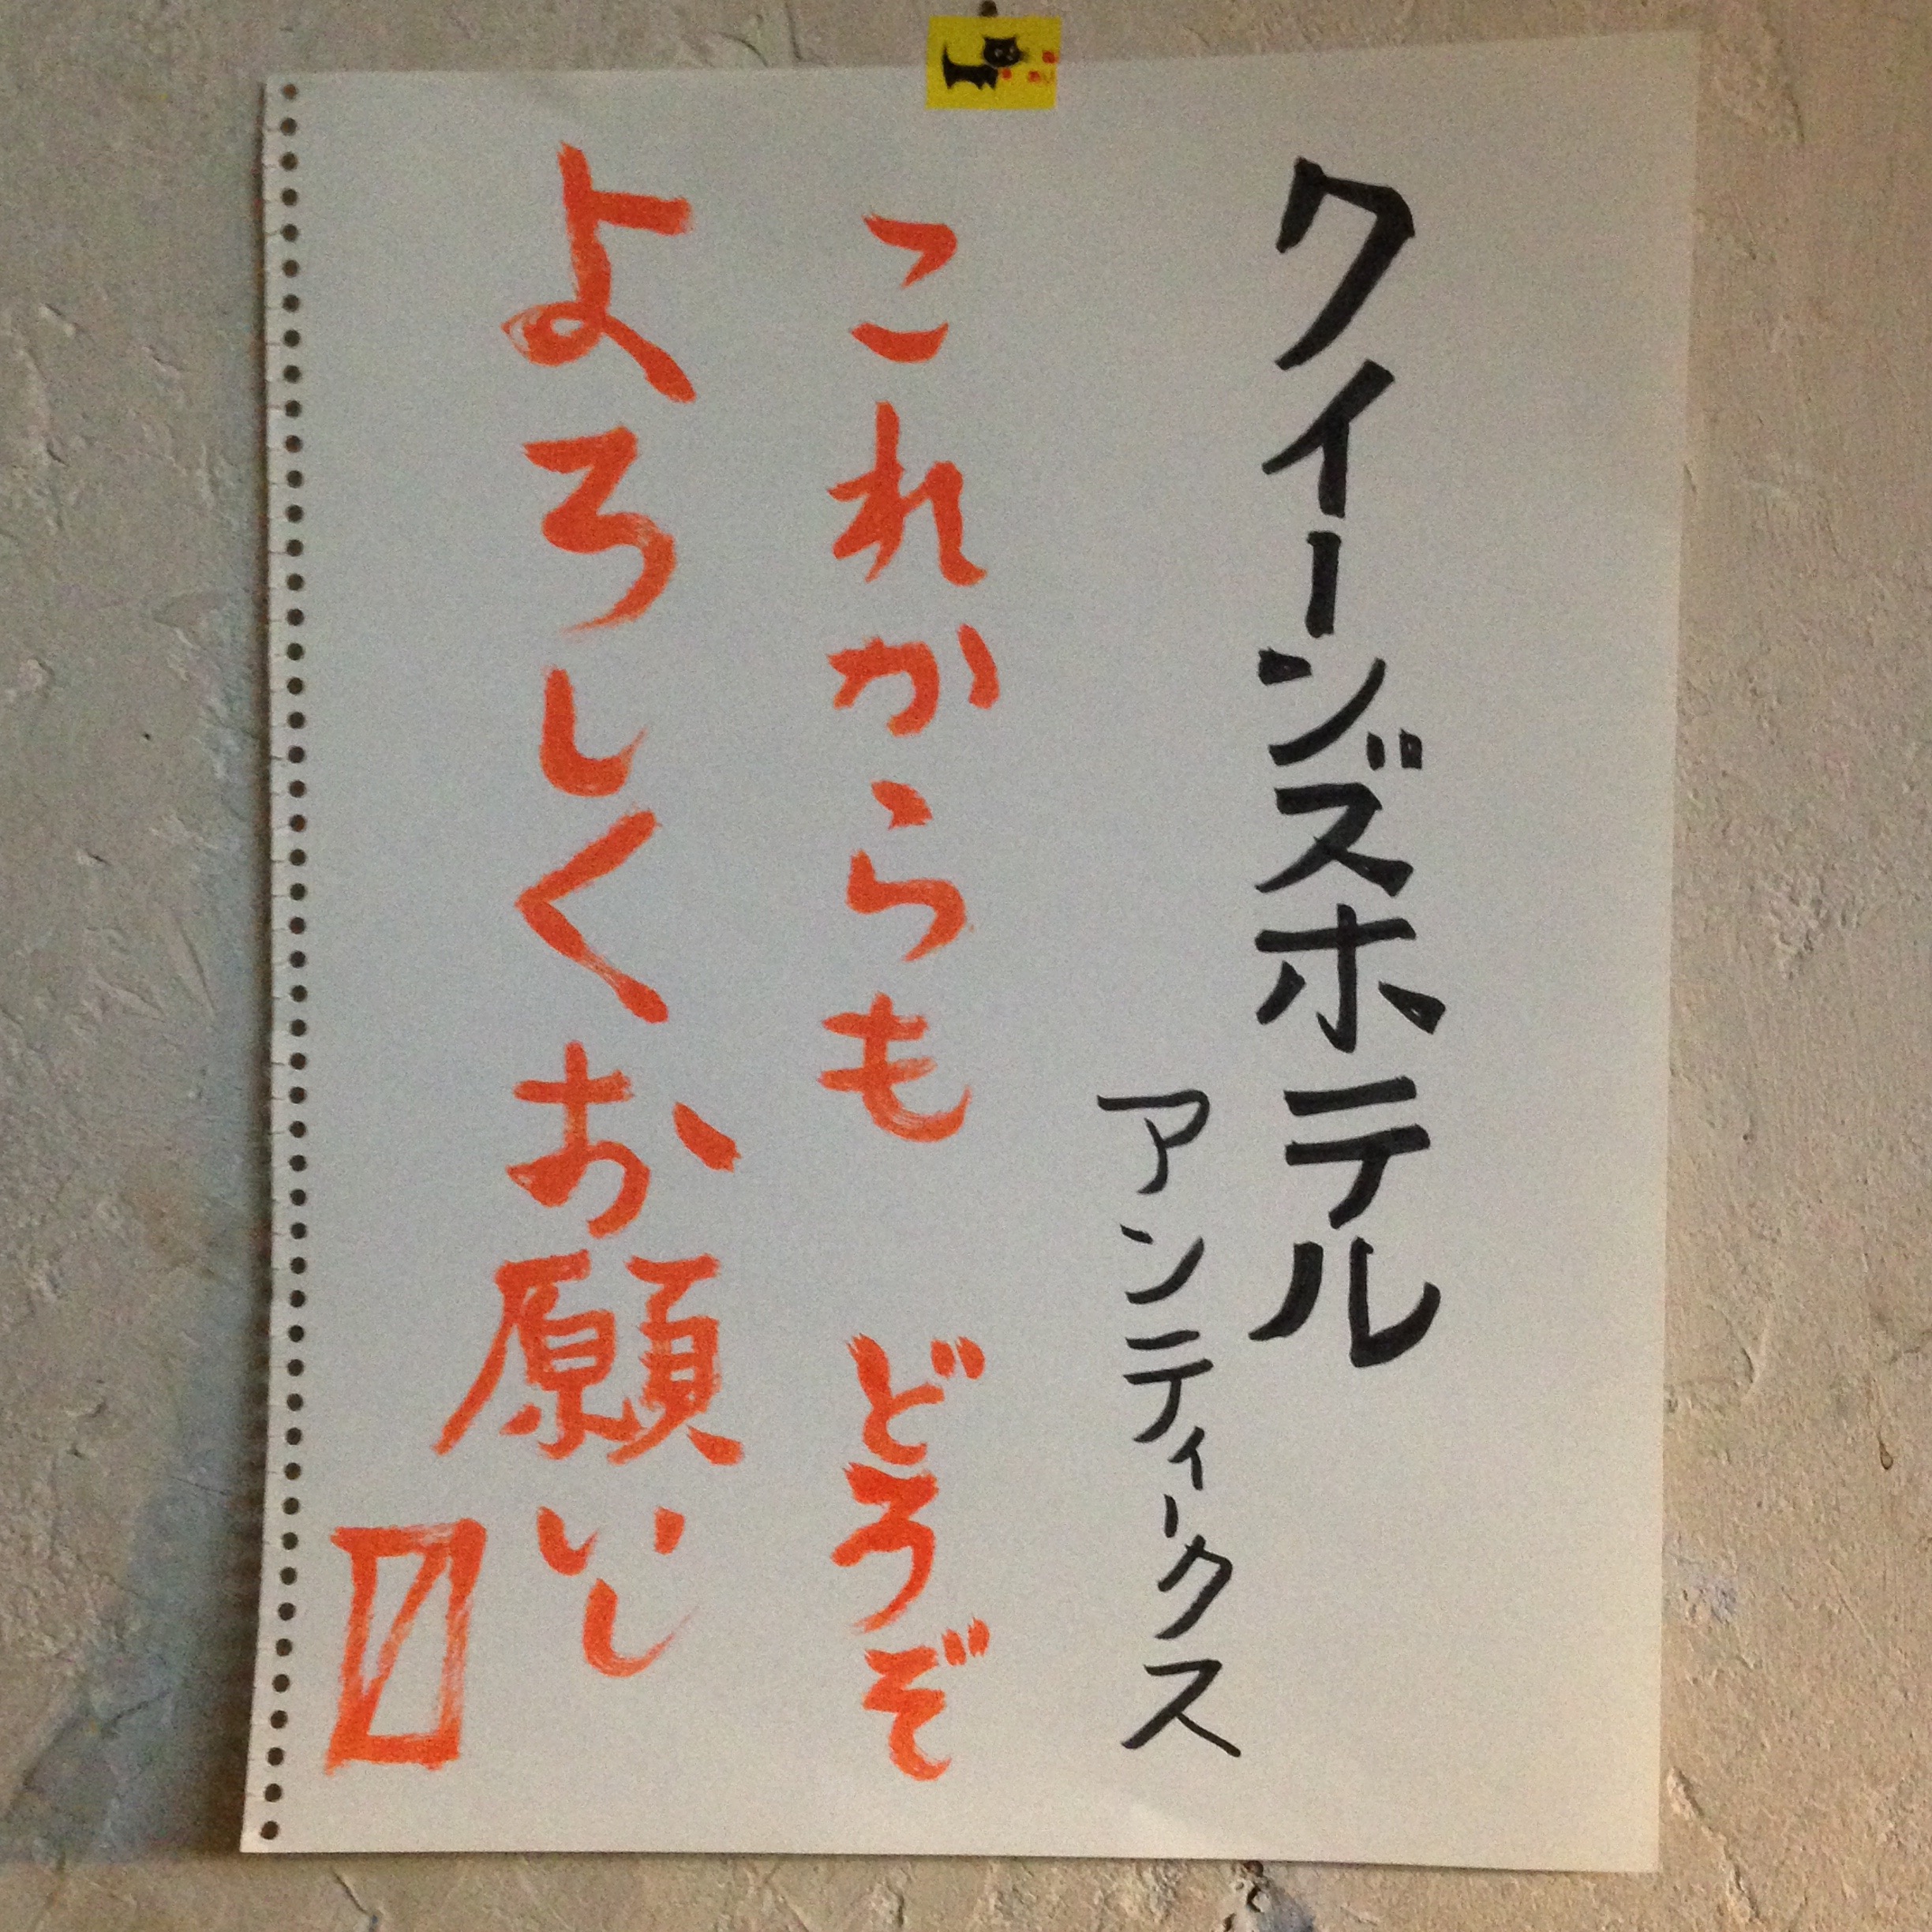 クイーンズホテル
アンティークス
これからも どうぞ
よろしくお願いし〼